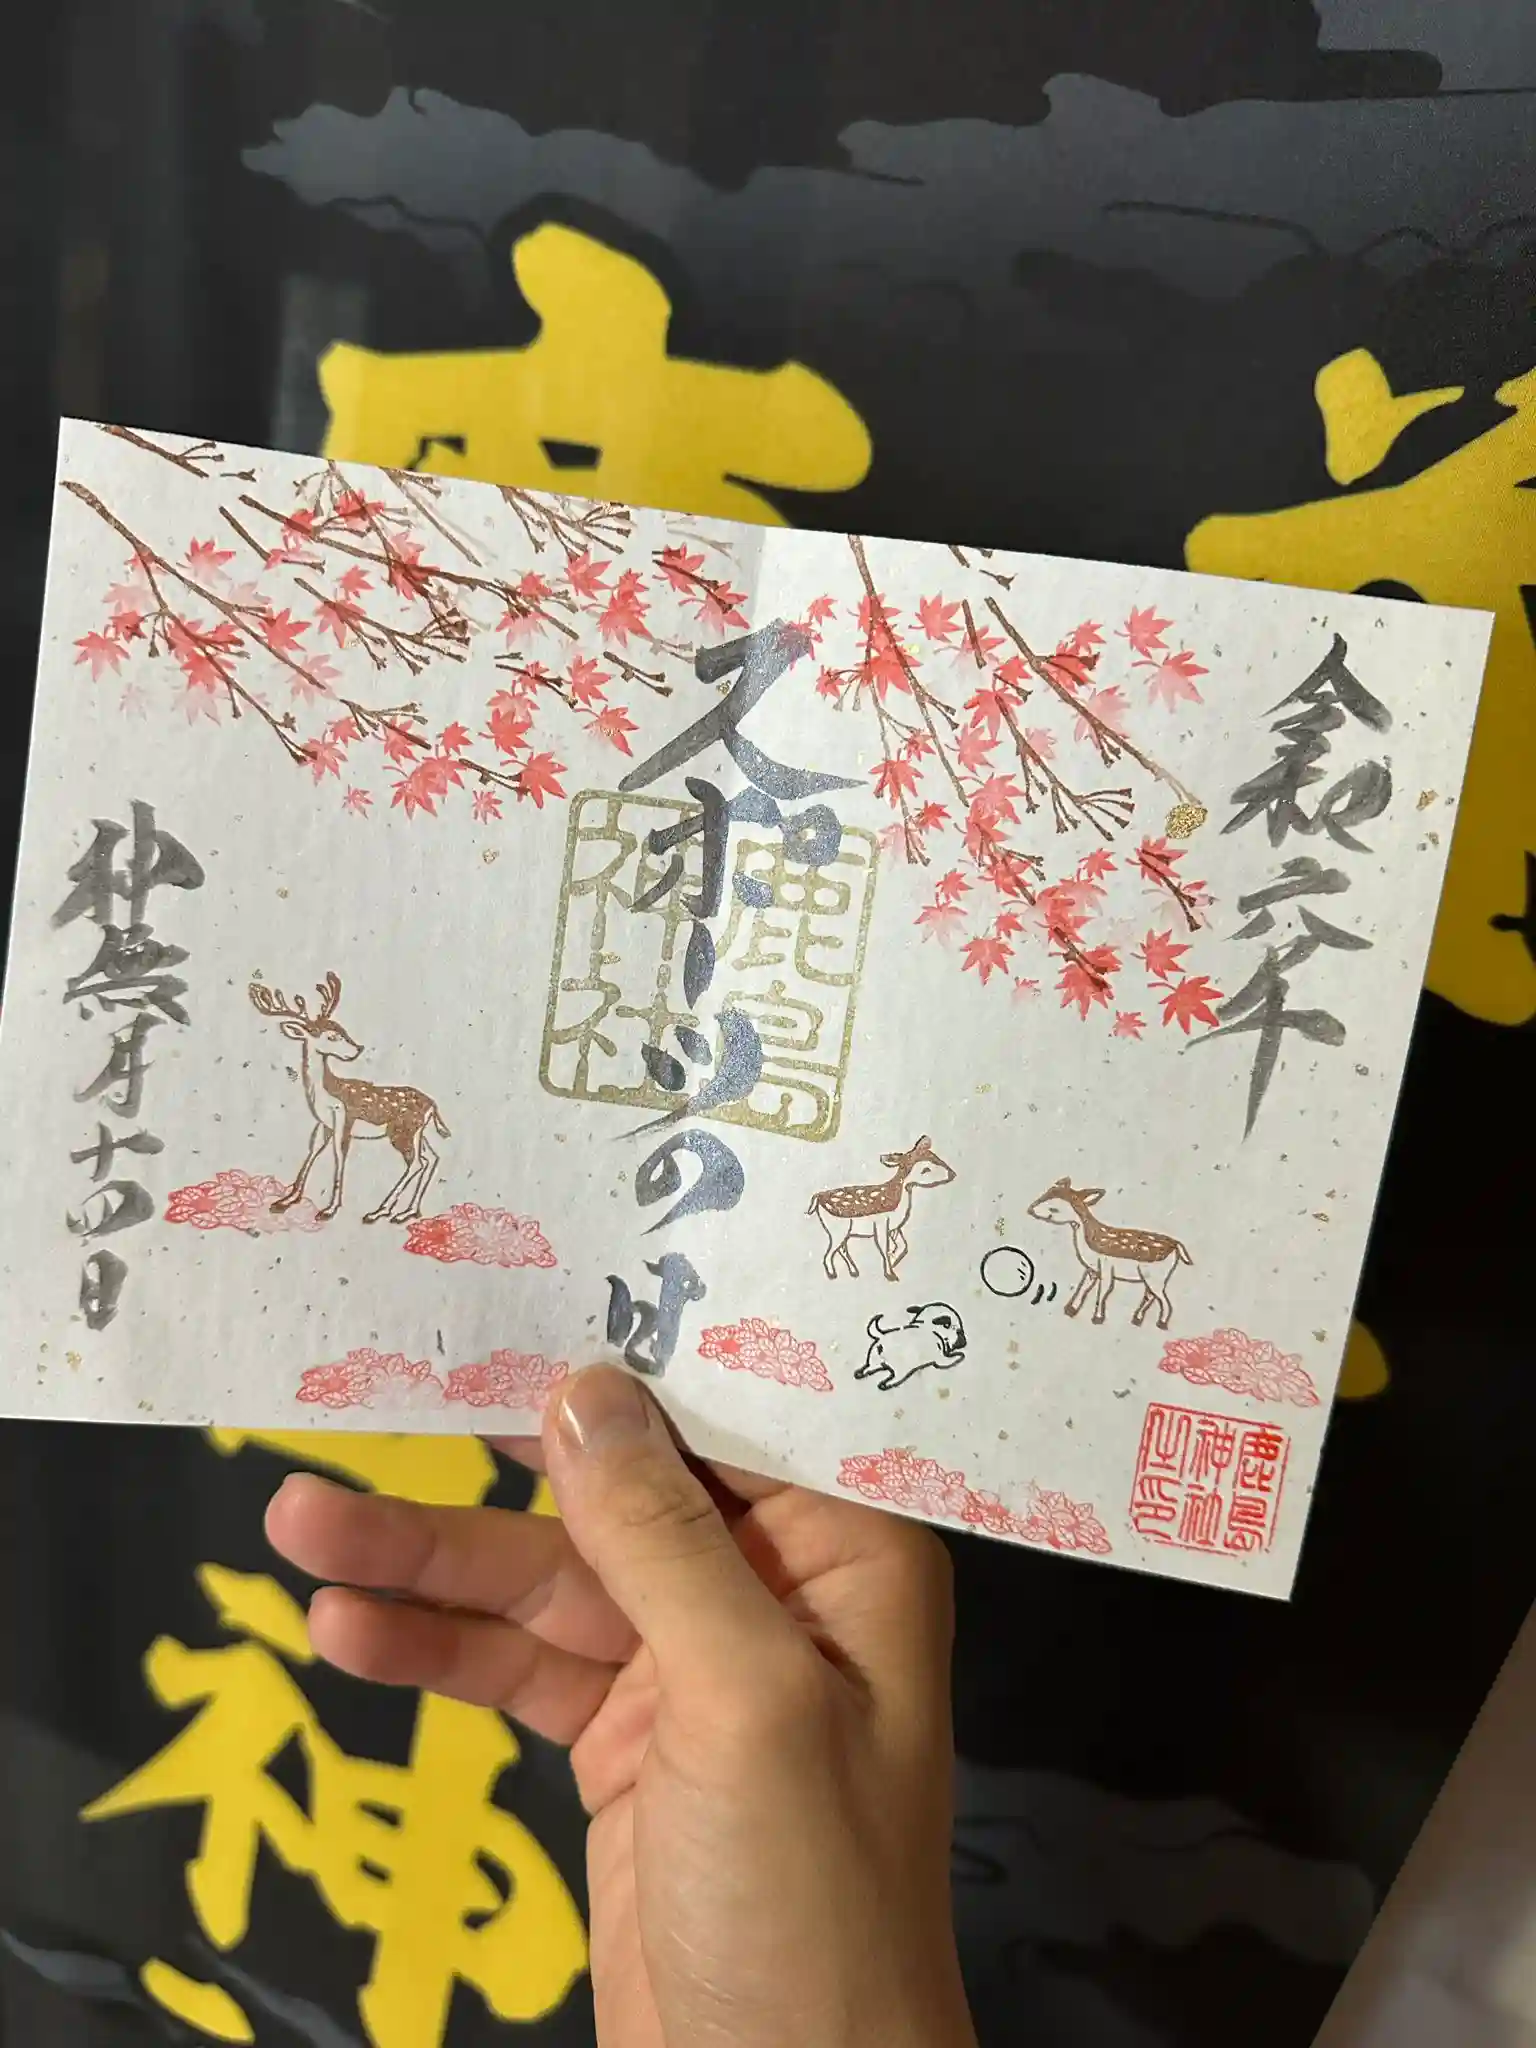 令和六年
スポーツの日
鹿島
神社
神無月十四日
鹿島
神社
之印
神